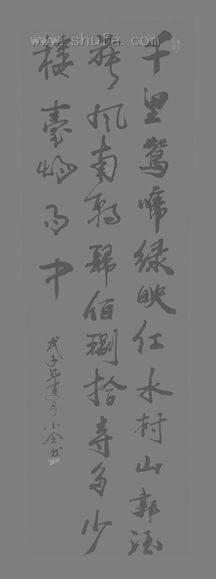 www.shufa.com
千里鶯啼绿映红水村山郭酒
旗风南朝肆佰捌拾寺多少
楼臺烟雨中
戊子年